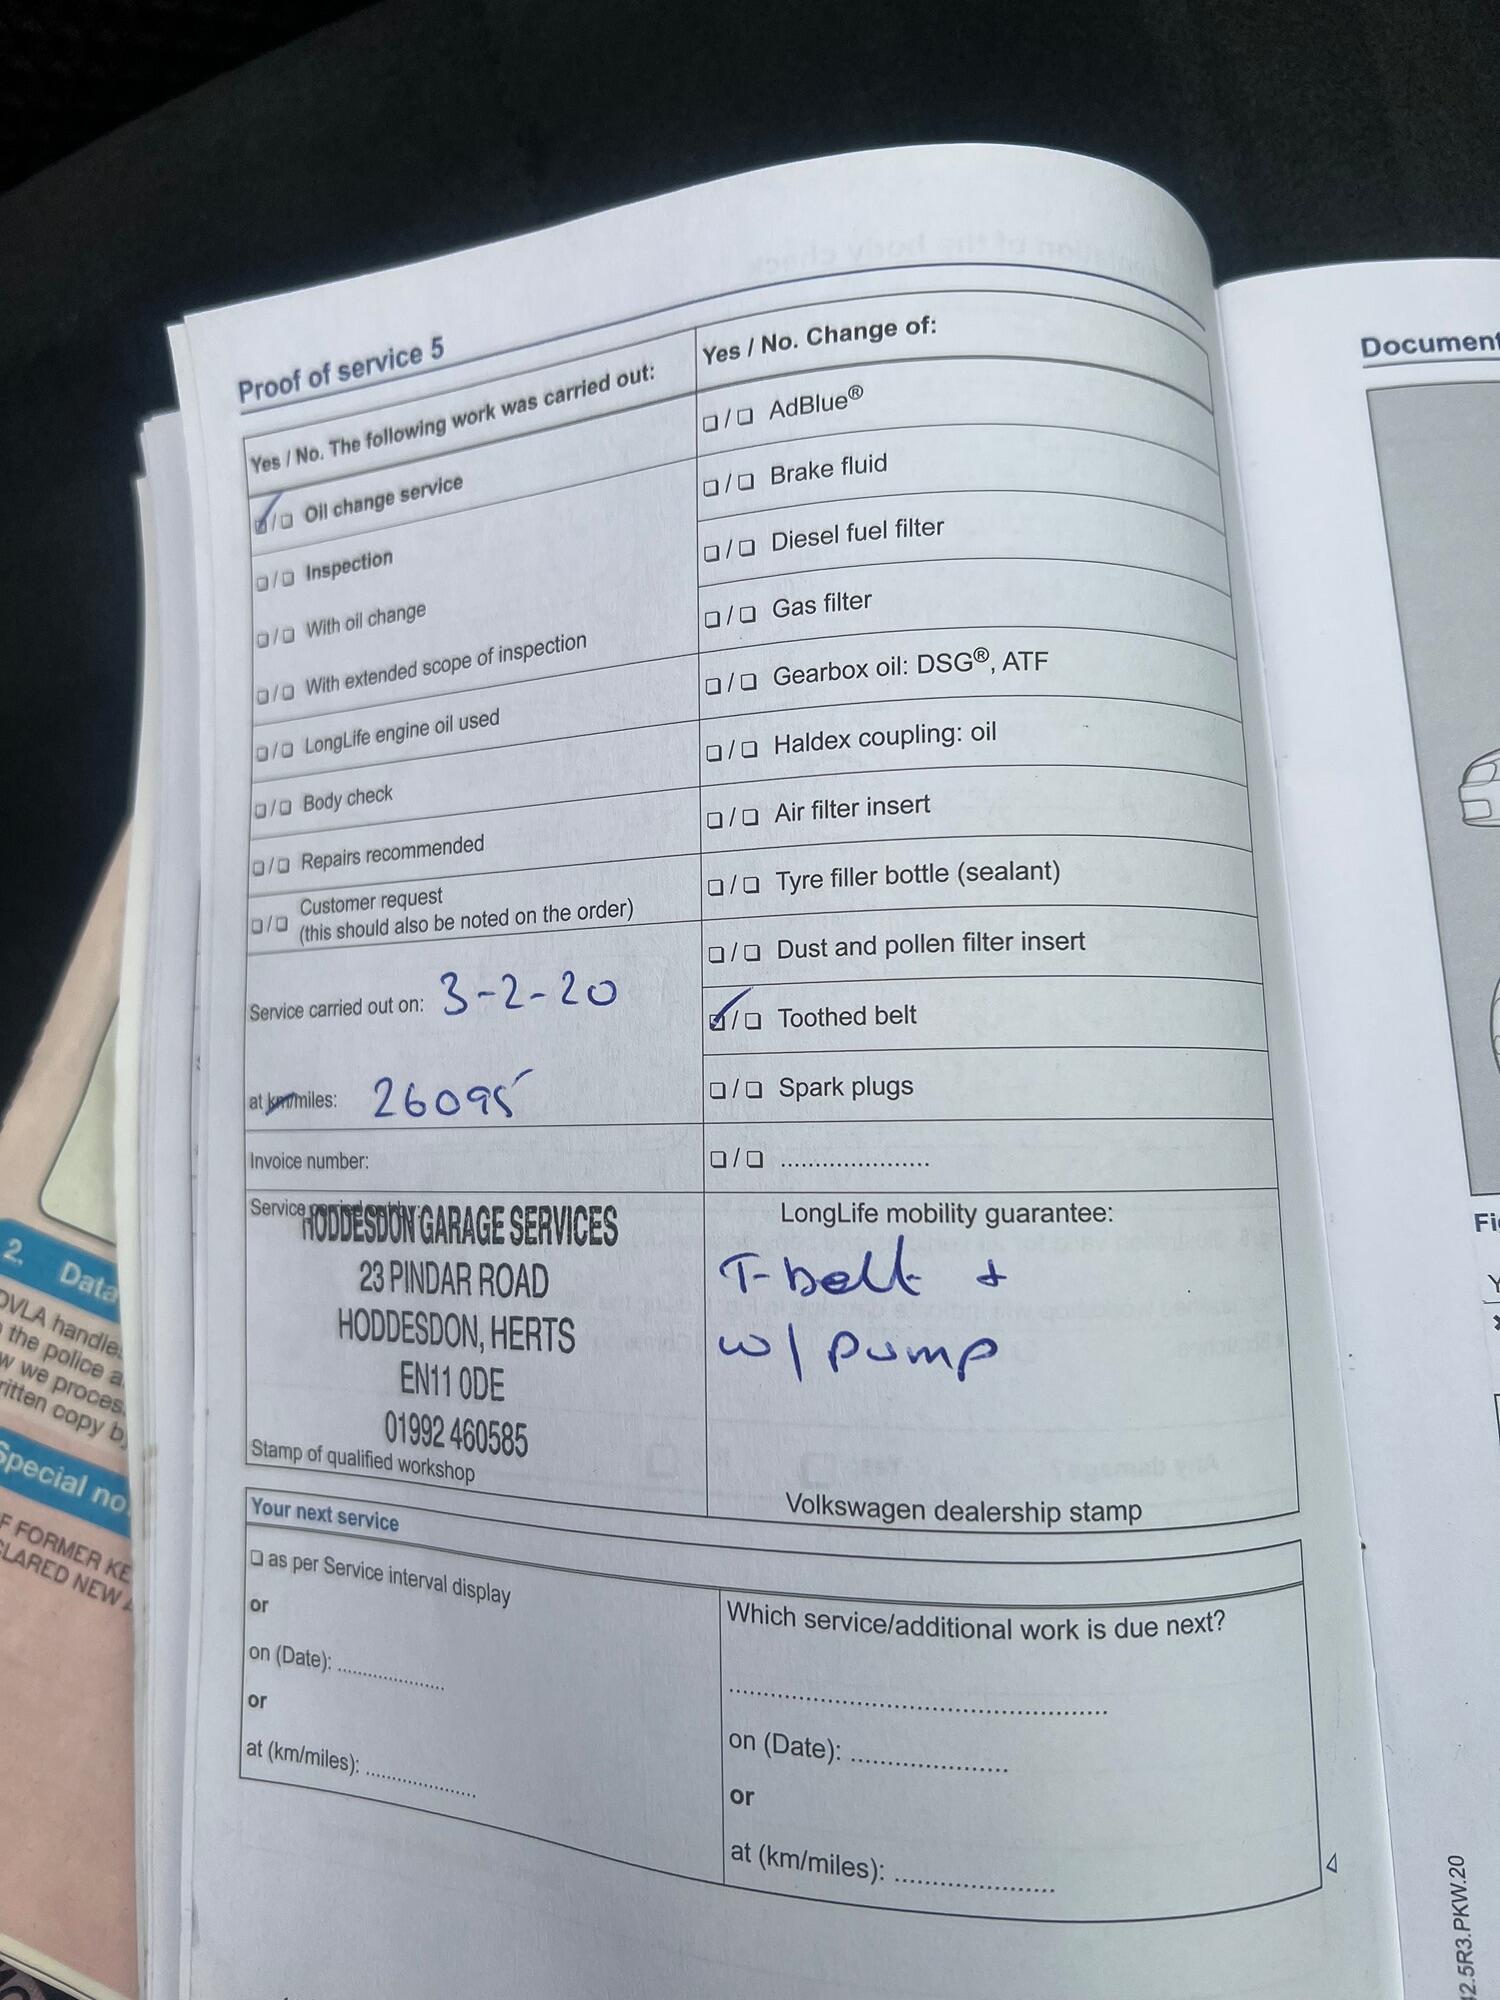 Proof of service 5
Yes / No. The following work was carried out:
☑/❏ Oil change service
❏/❏ Inspection
❏/❏ With oil change
❏/❏ With extended scope of inspection
❏/❏ LongLife engine oil used
❏/❏ Body check
❏/❏ Repairs recommended
❏/❏ Customer request
(this should also be noted on the order)
Service carried out on: 3-2-20
at km/miles: 26095
Invoice number:
Service
HODDESDON GARAGE SERVICES
23 PINDAR ROAD
HODDESDON, HERTS
EN11 0DE
01992 460585
Stamp of qualified workshop
Yes / No. Change of:
❏/❏ AdBlue®
❏/❏ Brake fluid
❏/❏ Diesel fuel filter
❏/❏ Gas filter
❏/❏ Gearbox oil: DSG®, ATF
❏/❏ Haldex coupling: oil
❏/❏ Air filter insert
❏/❏ Tyre filler bottle (sealant)
❏/❏ Dust and pollen filter insert
☑/❏ Toothed belt
❏/❏ Spark plugs
❏/❏ ......................
LongLife mobility guarantee:
T-belt +
w/pump
Volkswagen dealership stamp
Your next service
❏ as per Service interval display
or
on (Date): ....................
or
at (km/miles): ....................
Which service/additional work is due next?
..................................................
on (Date): ......................
or
at (km/miles): ......................
Document
42.5R3.PKW.20
2. Data
DVLA handle
the police a
w we proces
ritten copy b
Special no
F FORMER KE
CLARED NEW